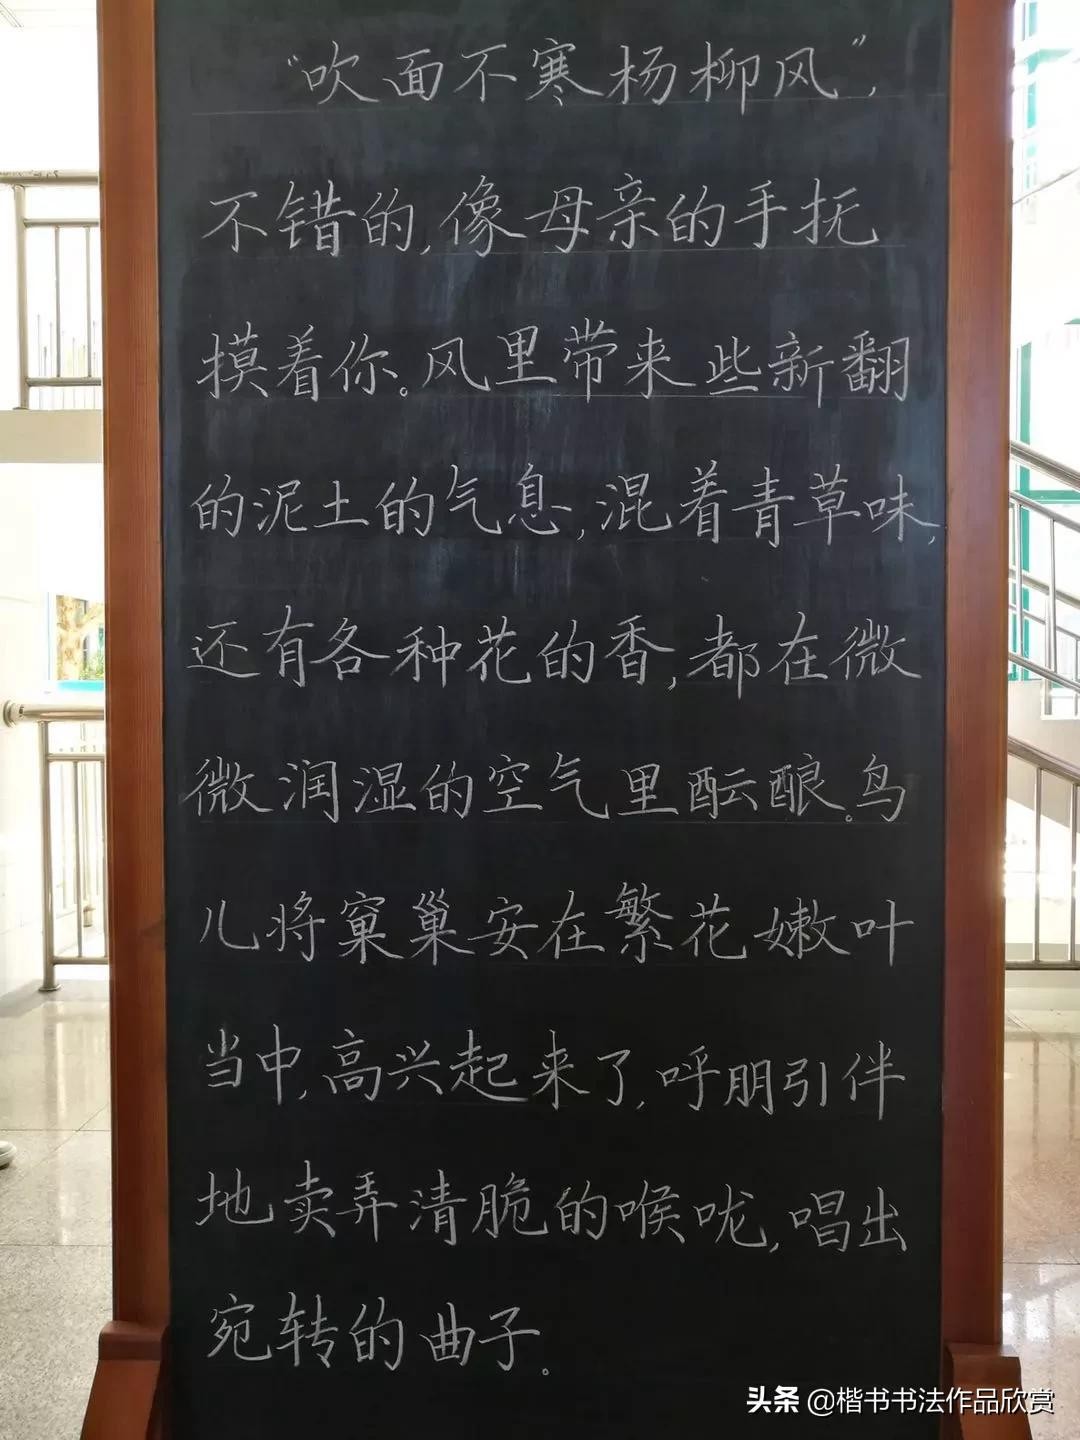 “吹面不寒杨柳风”，
不错的，像母亲的手抚
摸着你。风里带来些新翻
的泥土的气息，混着青草味，
还有各种花的香，都在微
微润湿的空气里酝酿。鸟
儿将窠巢安在繁花嫩叶
当中，高兴起来了，呼朋引伴
地卖弄清脆的喉咙，唱出
宛转的曲子。
头条 @楷书书法作品欣赏